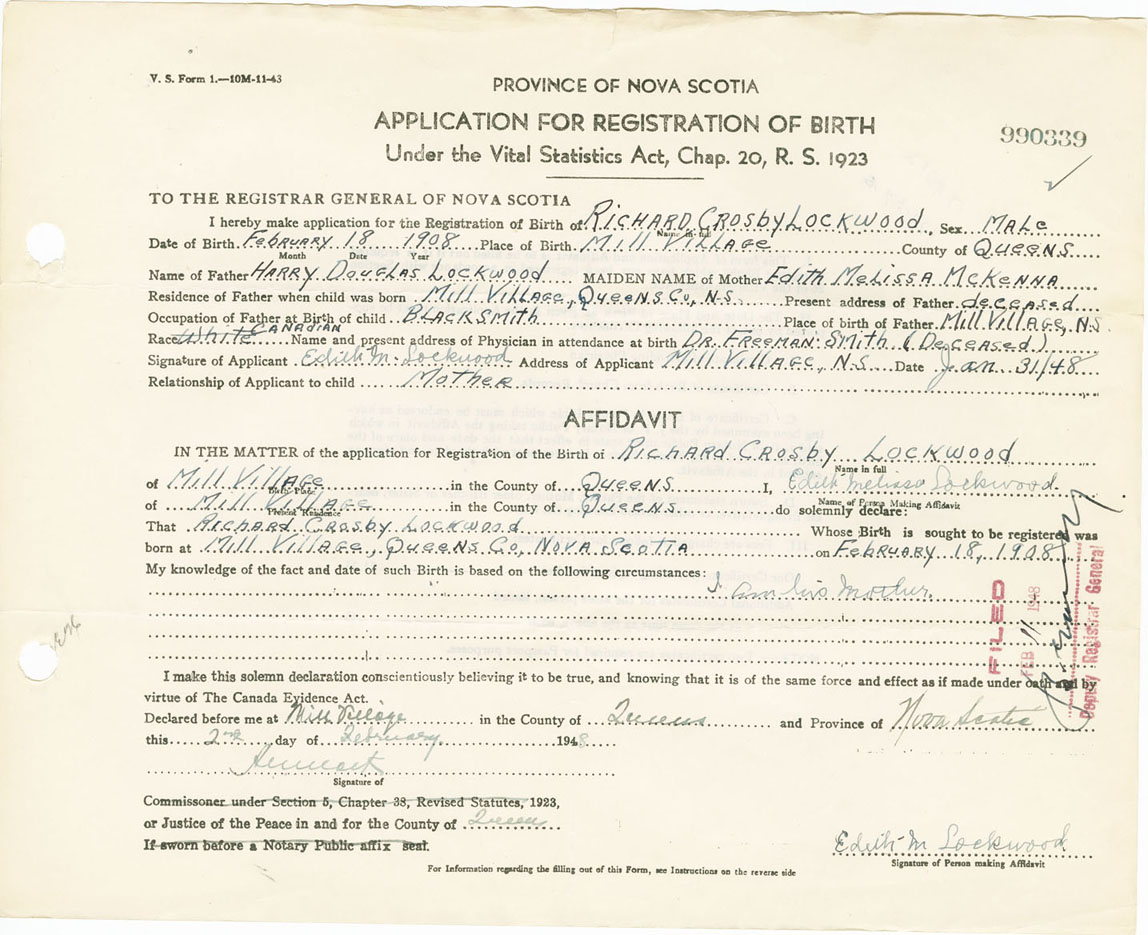 V. S. Form 1.—10M-11-43
PROVINCE OF NOVA SCOTIA
APPLICATION FOR REGISTRATION OF BIRTH
990339
Under the Vital Statistics Act, Chap. 20, R. S. 1923
TO THE REGISTRAR GENERAL OF NOVA SCOTIA
I hereby make application for the Registration of Birth of RICHARD CROSBY LOCKWOOD, Sex MALE
Name in full
Date of Birth FEBRUARY 18 1908 Place of Birth MILL VILLAGE County of QUEENS
Month Date Year
Name of Father HARRY DOUGLAS LOCKWOOD MAIDEN NAME of Mother EDITH MELISSA MCKENNA
Residence of Father when child was born MILL VILLAGE, QUEENS CO, N.S. Present address of Father deceased
Occupation of Father at Birth of child BLACKSMITH Place of birth of Father MILL VILLAGE, N.S
Race White CANADIAN Name and present address of Physician in attendance at birth DR. FREEMAN SMITH (DECEASED)
Signature of Applicant Edith M. Lockwood Address of Applicant MILL VILLAGE, N.S. Date Jan. 31/48
Relationship of Applicant to child MOTHER
AFFIDAVIT
IN THE MATTER of the application for Registration of the Birth of RICHARD CROSBY LOCKWOOD
Name in full
of MILL VILLAGE in the County of QUEENS I, Edith Melissa Lockwood
Birth Place Name of Person Making Affidavit
of MILL VILLAGE in the County of QUEENS do solemnly declare:
Present Residence
That RICHARD CROSBY LOCKWOOD Whose Birth is sought to be registered was
born at MILL VILLAGE, QUEENS CO, NOVA SCOTIA on FEBRUARY 18, 1908
My knowledge of the fact and date of such Birth is based on the following circumstances:
I am his Mother.
FILED
FEB 11 1948
Deputy Registrar General
I make this solemn declaration conscientiously believing it to be true, and knowing that it is of the same force and effect as if made under oath and by
virtue of The Canada Evidence Act.
Declared before me at Mill Village in the County of Queens and Province of Nova Scotia
this 2nd day of February 1948
Signature of
Commissoner under Section 5, Chapter 38, Revised Statutes, 1923,
or Justice of the Peace in and for the County of Queens
If sworn before a Notary Public affix seal.
Edith M Lockwood
Signature of Person making Affidavit
For Information regarding the filling out of this Form, see Instructions on the reverse side